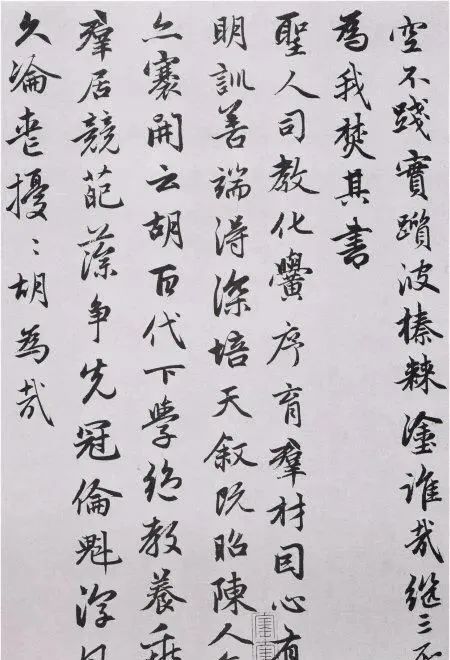 空不踐實躓彼榛棘塗誰哉継三
為我焚其書
聖人司教化黌序育羣材因心有
明訓善端得深培天叙既昭陳人
亦褰開云胡百代下學絶教養乖
羣居競葩藻争先冠倫魁淳
久淪喪擾〻胡為哉